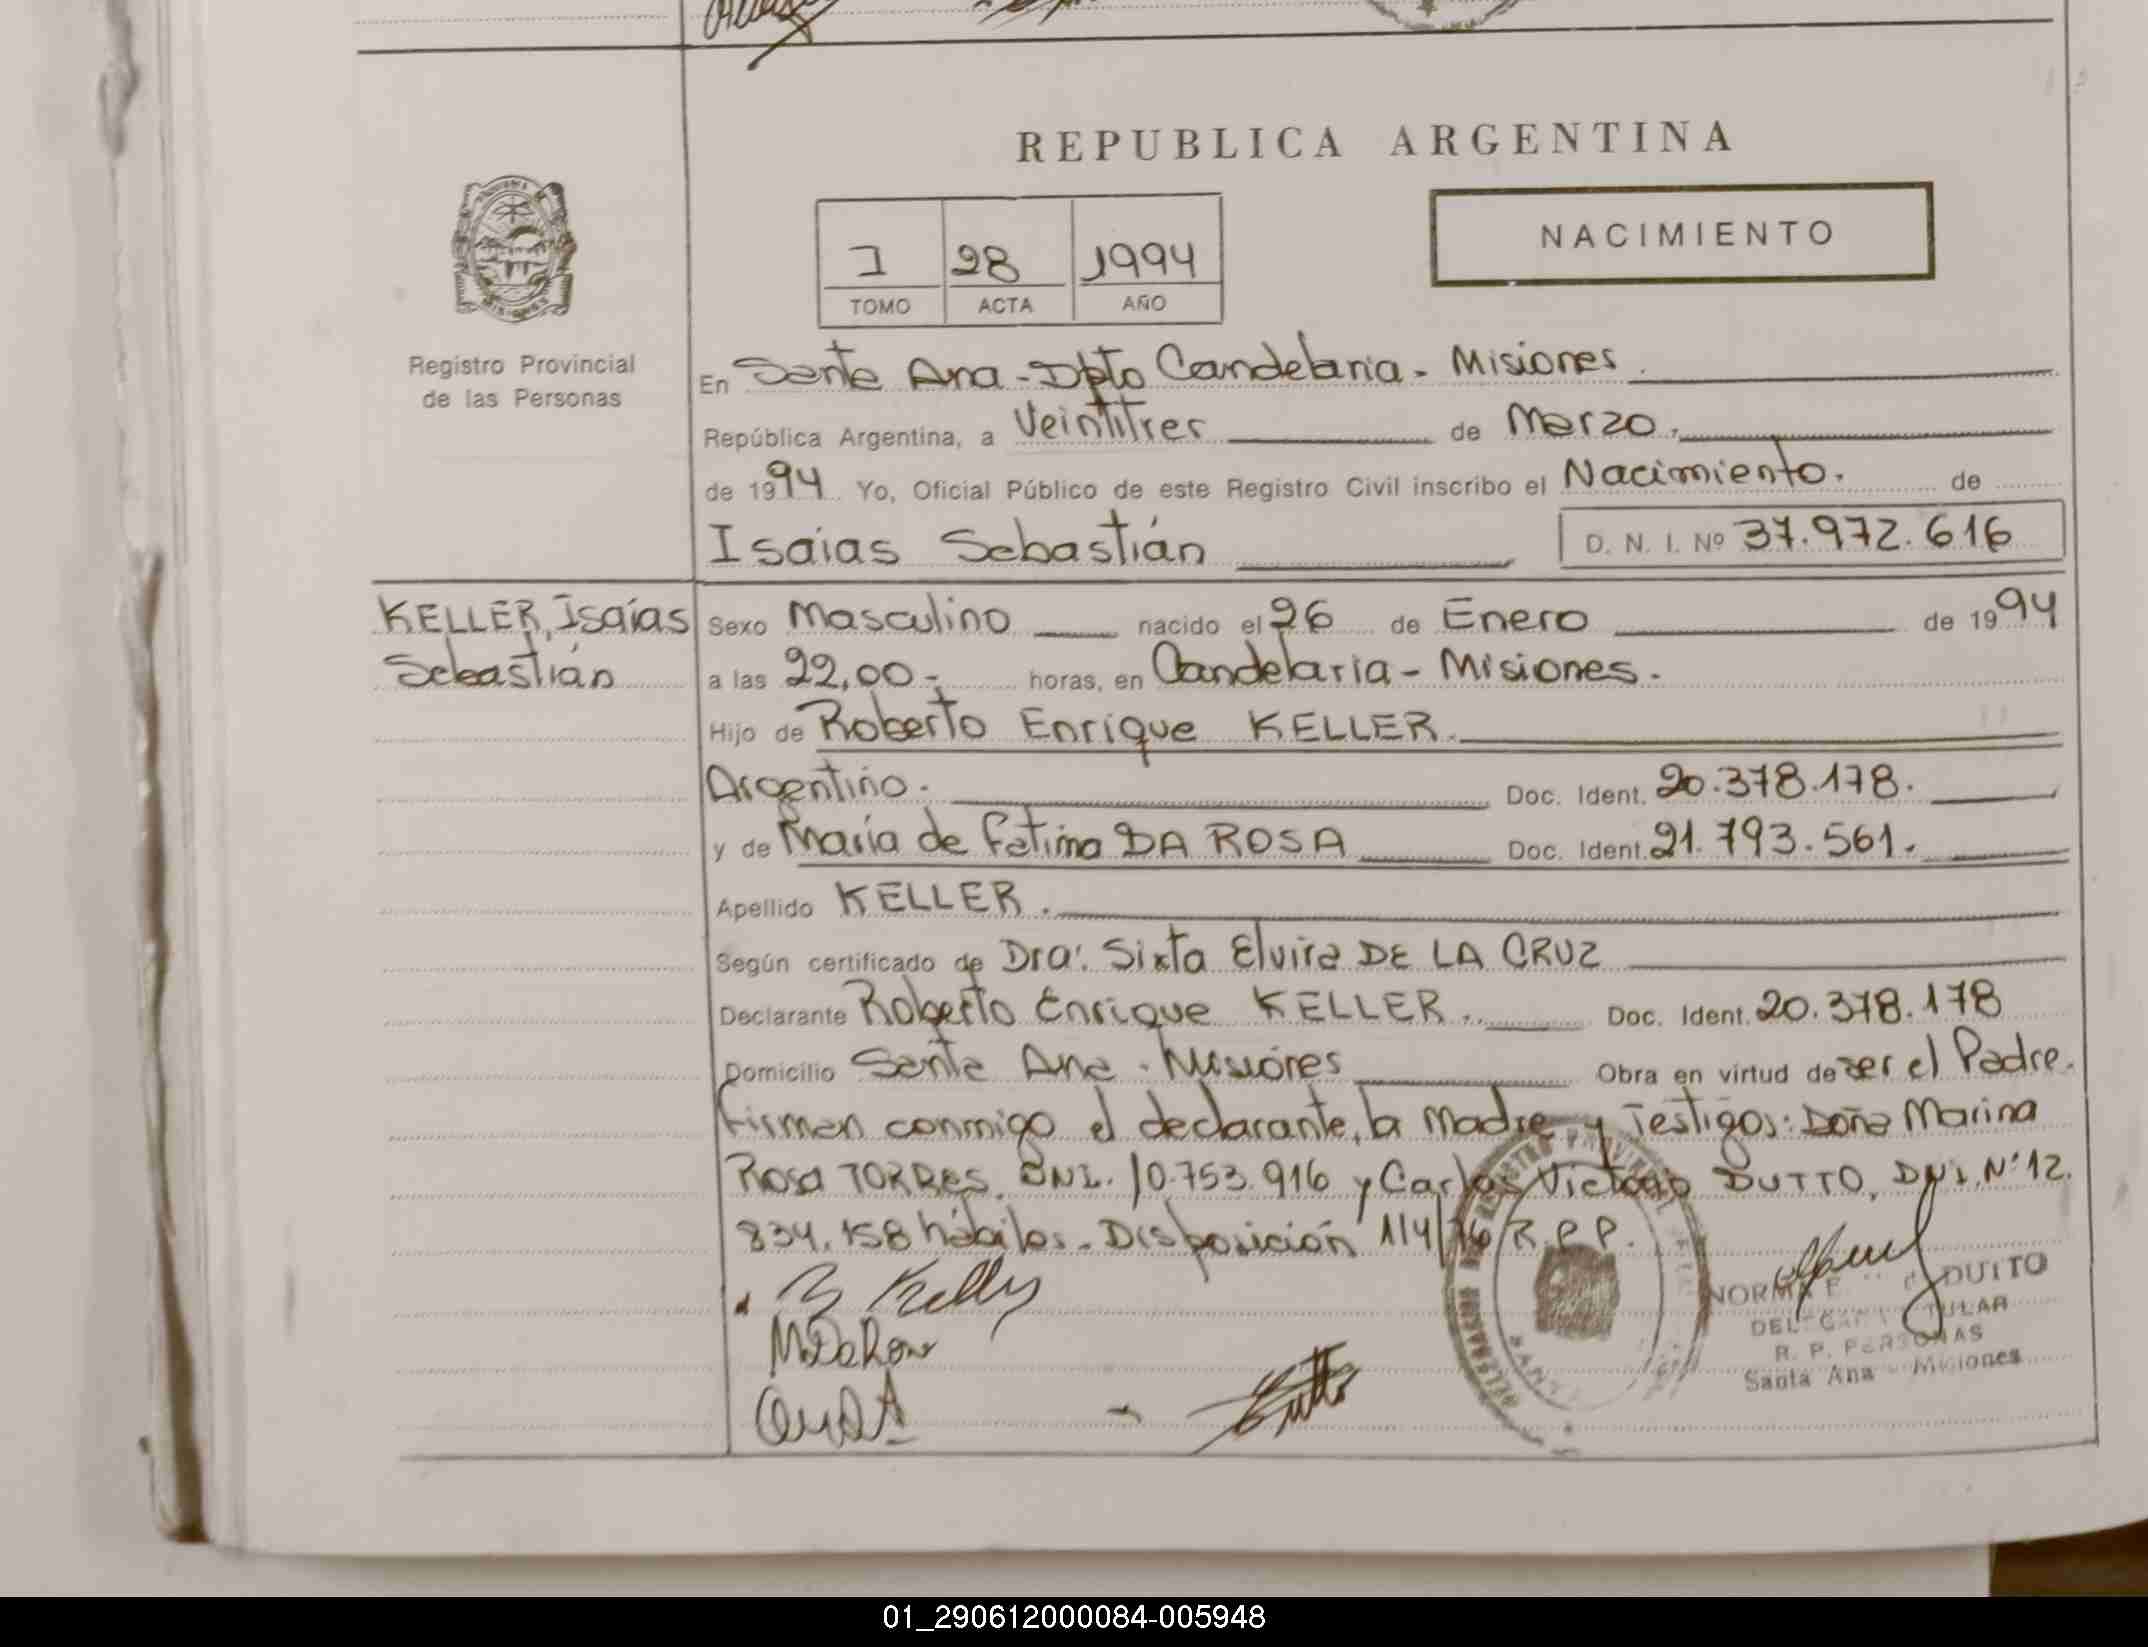 REPUBLICA ARGENTINA
NACIMIENTO
I 28 1994
TOMO ACTA AÑO
Registro Provincial
de las Personas
En Santa Ana - Dpto Candelaria - Misiones
República Argentina, a Veintitres de Marzo.
de 1994 Yo, Oficial Público de este Registro Civil inscribo el Nacimiento. de
Isaías Sebastián D. N. I. Nº 37.972.616
KELLER, Isaías
Sebastián
Sexo Masculino nacido el 26 de Enero de 1994
a las 22,00- horas, en Candelaria - Misiones.
Hijo de Roberto Enrique KELLER.
Argentino. Doc. Ident. 20.378.178.
y de María de Fátima DA ROSA Doc. Ident. 21.793.561.
Apellido KELLER.
Según certificado de Dra: Sixta Elvira DE LA CRUZ
Declarante Roberto Enrique KELLER. Doc. Ident. 20.378.178
Domicilio Santa Ana - Misiones Obra en virtud de ser el Padre.
Firman conmigo el declarante, la Madre y Testigos: Doña Marina
Rosa TORRES. DNI. 10.753.916 y Carlos Victorio DUTTO, DNI. Nº 12.
834.158 hábiles. Disposición 1/4/76 R.P.P.
NORMA E. DUTTO
TITULAR
R. P. PERSONAS
Santa Ana - Misiones
01_290612000084-005948